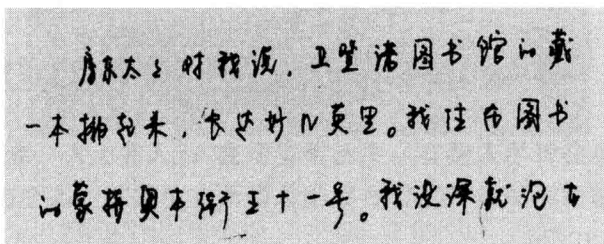 房东太太对我说,卫坐落图书馆的藏
一本排起来,长达好几英里。我住在图书
的蒙塔奥本街五十一号。我没课就泡在